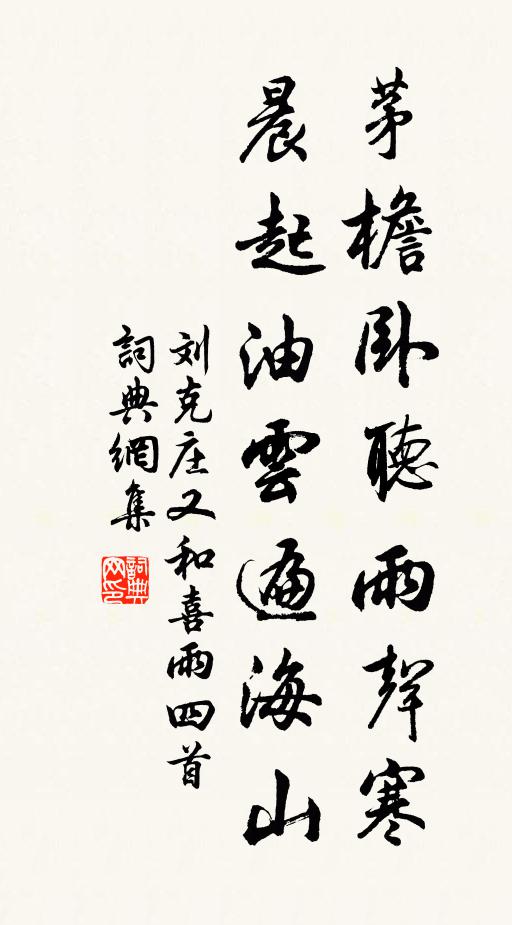 茅檐卧聽雨聲寒
晨起油雲遍海山
刘克庄又和喜雨四首
詞典網集
詞典网印